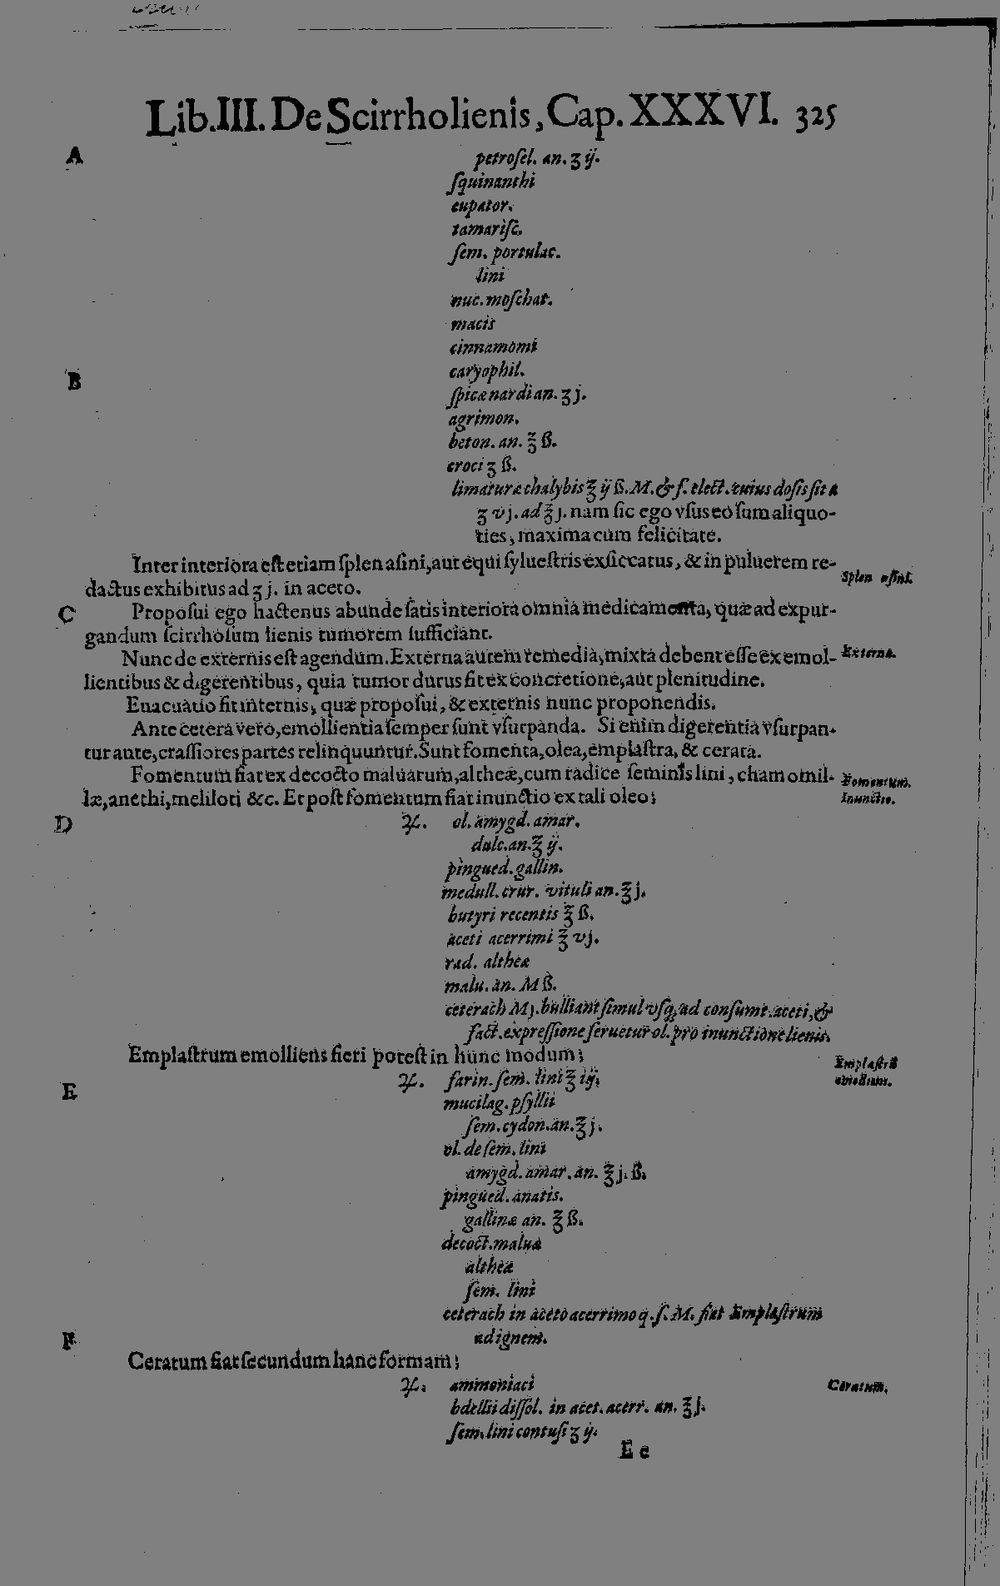 Lib.III. De Scirrho lienis, Cap. XXXVI. 325
A
petroſel. an. ʒ ij.
ſquinanthi
eupator.
tamariſc.
ſem. portulac.
lini
nuc. moſchat.
macis
cinnamomi
caryophil.
B
ſpicæ nardi an. ʒ j.
agrimon.
beton. an. ℥ ß.
croci ʒ ß.
limaturæ chalybis ℥ ij ß. M. & f. elect. cuius doſis ſit a
ʒ vj. ad ℥ j. nam ſic ego vſus eo ſum aliquo-
ties, maxima cum felicitate.
Inter interiora eſt etiam ſplen aſini, aut equi ſylueſtris exſiccatus, & in puluerem re-
Splen aſini.
dactus exhibitus ad ʒ j. in aceto.
C
Propoſui ego hactenus abunde ſatis interiora omnia medicamenta, quæ ad expur-
gandum ſcirrhoſum lienis tumorem ſufficiant.
Nunc de externis eſt agendum. Externa autem remedia, mixta debent eſſe ex emol-
Externa.
lientibus & digerentibus, quia tumor durus fit ex concretione, aut plenitudine.
Euacuatio fit internis, quæ propoſui, & externis nunc proponendis.
Ante cetera vero, emollientia ſemper ſunt vſurpanda. Si enim digerentia vſurpan-
tur ante, craſſiores partes relinquuntur. Sunt fomenta, olea, emplaſtra, & cerata.
Fomentum fiat ex decocto maluarum, altheæ, cum radice ſeminis lini, chamomil-
Fomentum.
læ, anethi, meliloti &c. Et poſt fomentum fiat inunctio ex tali oleo;
Inunctio.
D
♃. ol. amygd. amar.
dulc. an. ℥ ij.
pingued. gallin.
medull. crur. vituli an. ℥ j.
butyri recentis ℥ ß.
aceti acerrimi ℥ vj.
rad. altheæ
malu. an. M ß.
ceterach M j. bulliant ſimul vſq; ad conſumt. aceti, &
fact. expreſſione ſeruetur ol. pro inunctione lienis.
Emplaſtrum emolliens fieri poteſt in hunc modum;
Emplaſtrū
emolliens.
E
♃. farin. ſem. lini ℥ iij.
mucilag. pſyllii
ſem. cydon. an. ℥ j.
ol. de ſem. lini
amygd. amar. an. ℥ j. ß.
pingued. anatis.
gallinæ an. ℥ ß.
decoct. maluæ
altheæ
ſem. lini
ceterach in aceto acerrimo q. ſ. M. fiat Emplaſtrum
F
ad ignem.
Ceratum fiat ſecundum hanc formam;
♃. ammoniaci
Ceratum.
bdellii diſſol. in acet. acerr. an. ℥ j.
ſem. lini contuſi ʒ ij.
E e